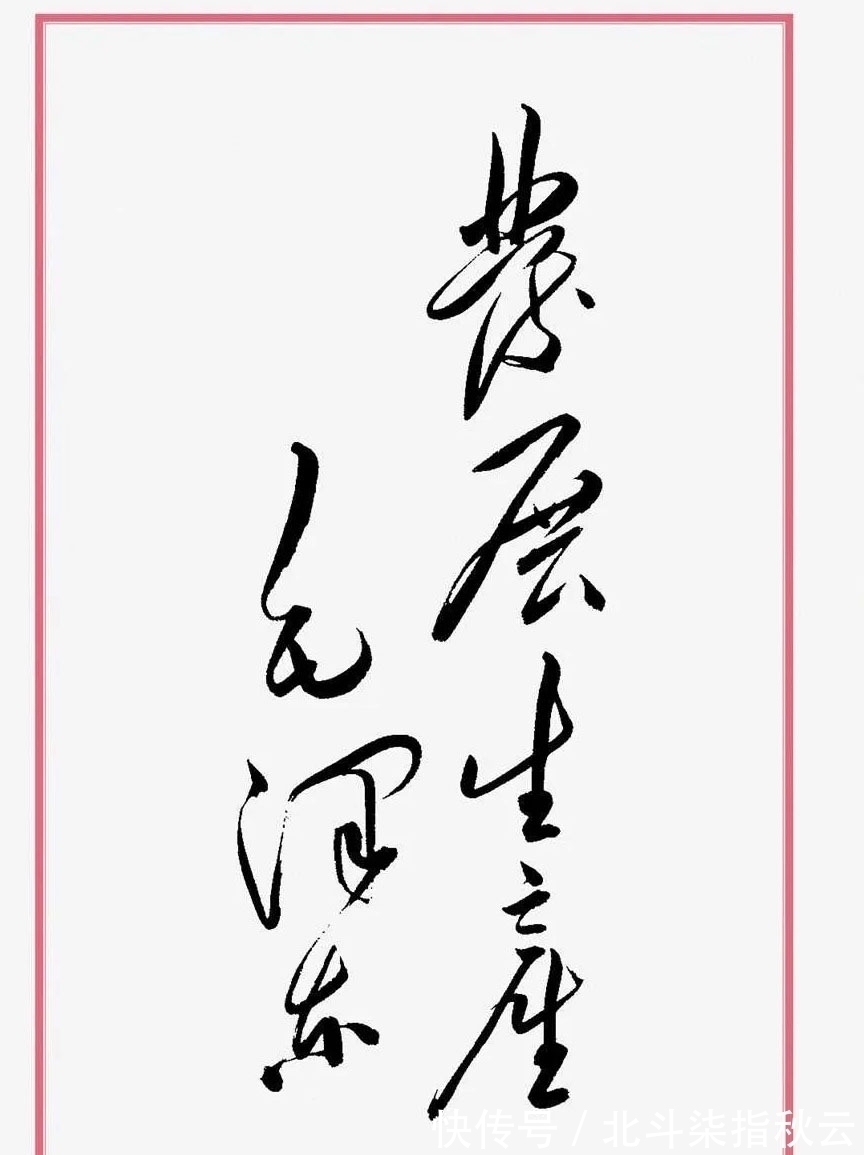 發展生產
毛澤东
快传号 / 北斗柒指秋云